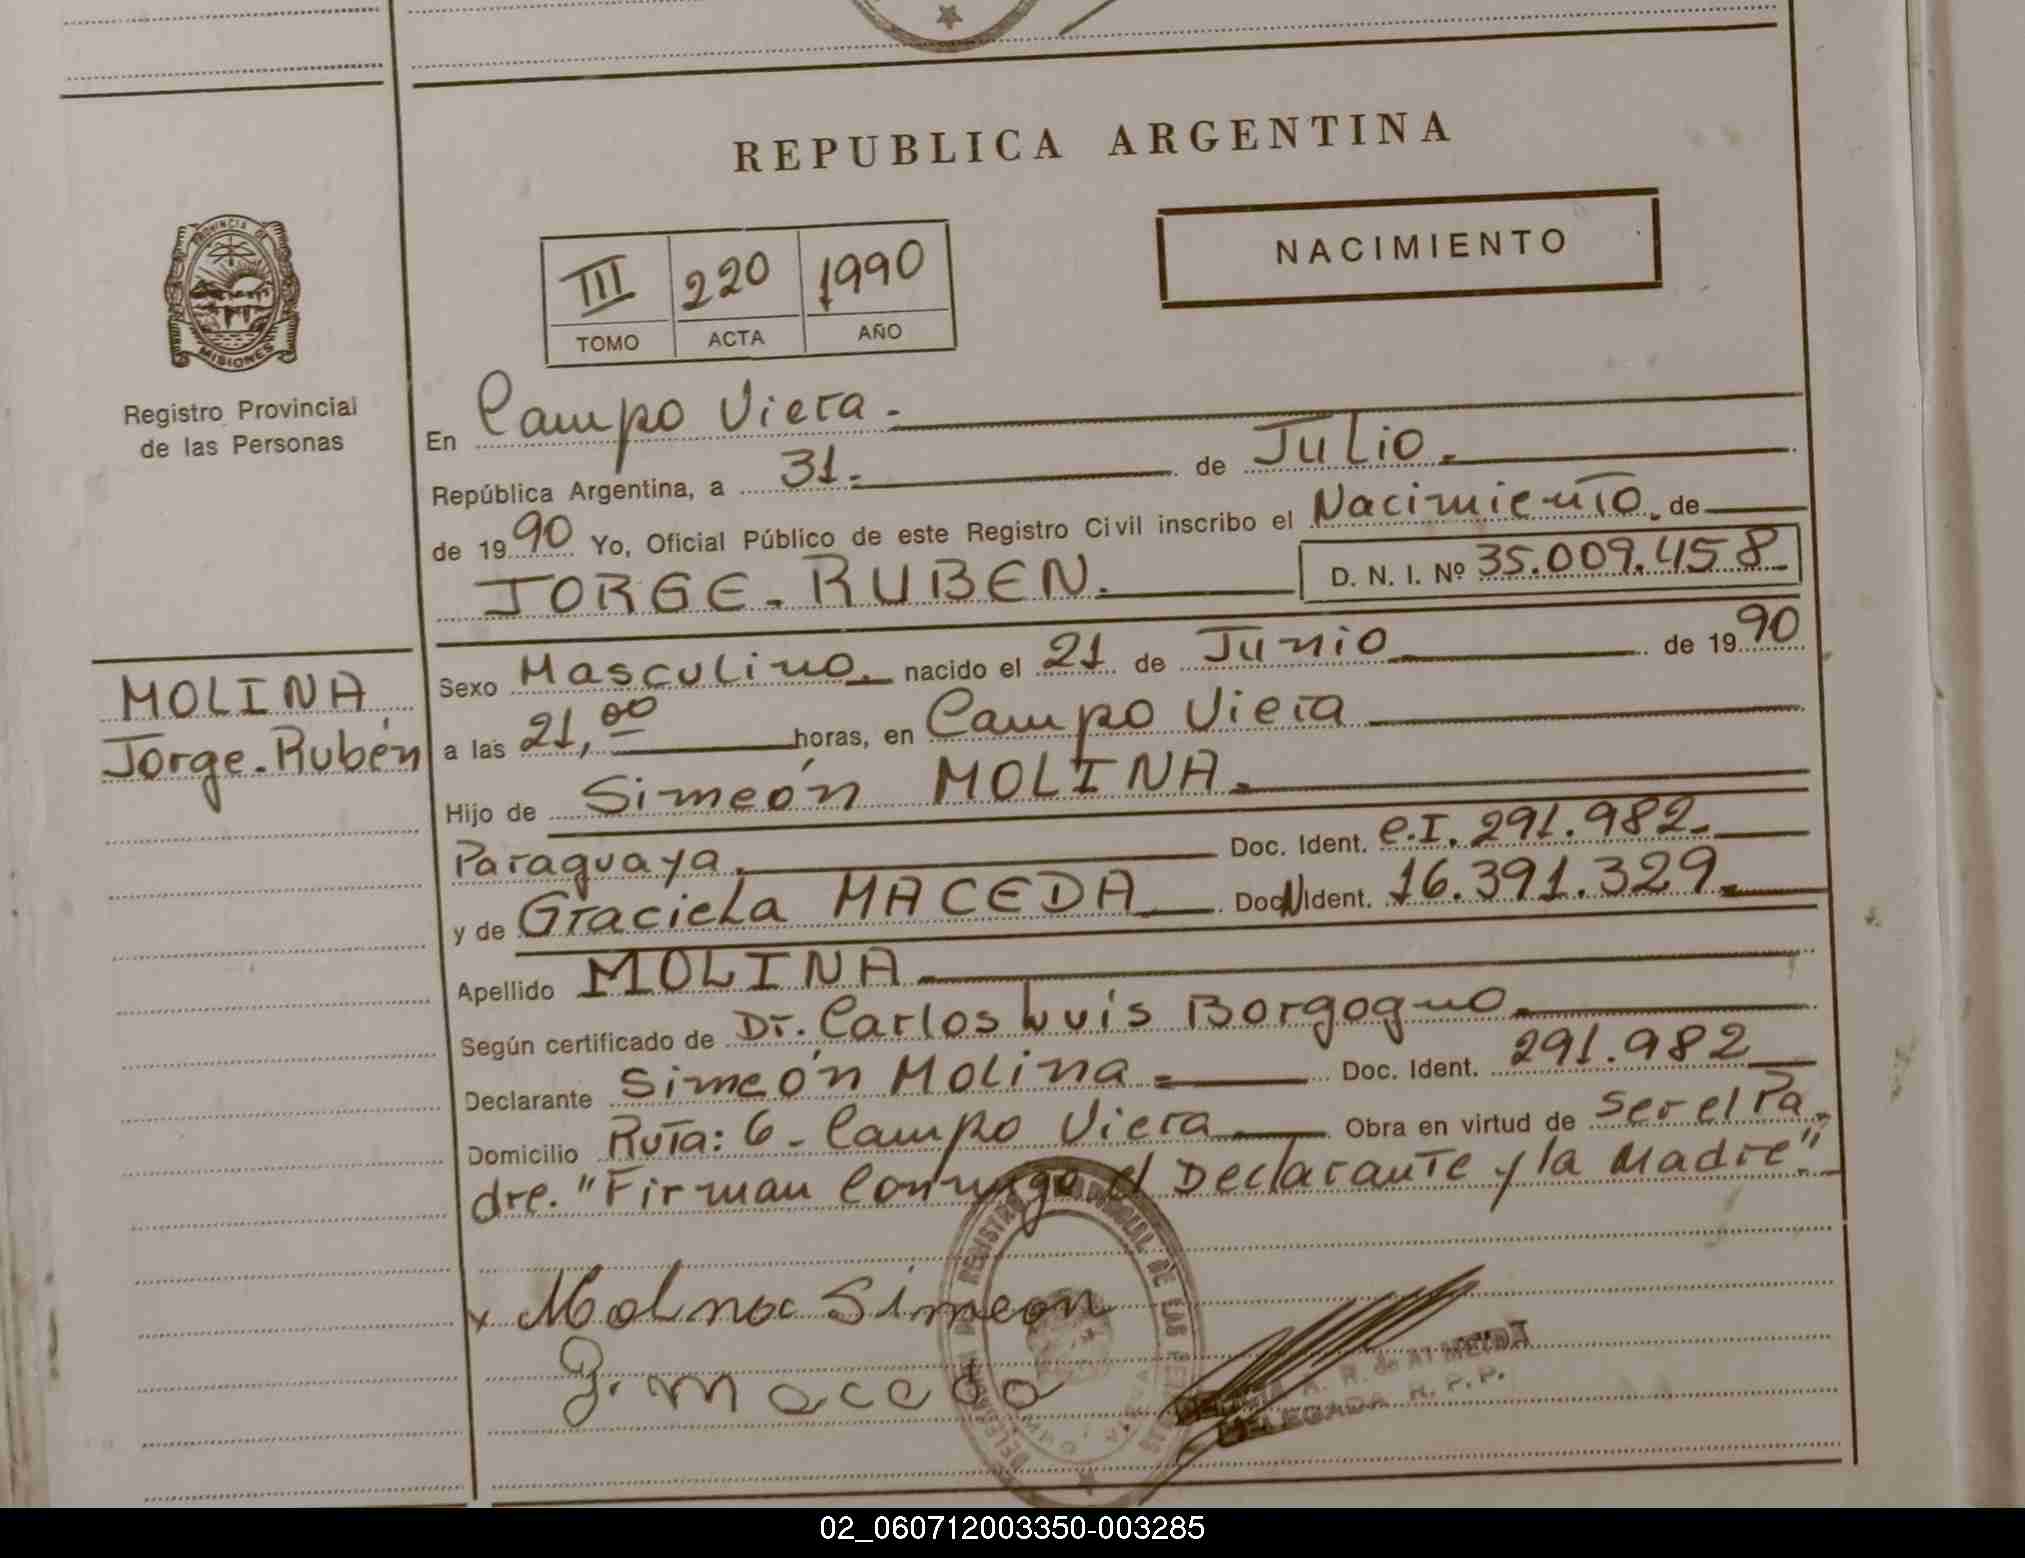 REPUBLICA ARGENTINA
NACIMIENTO
III 220 1990
TOMO ACTA AÑO
PROVINCIA DE
MISIONES
Registro Provincial
de las Personas
En Campo Viera.
República Argentina, a 31. de Julio.
de 1990 Yo, Oficial Público de este Registro Civil inscribo el Nacimiento. de
JORGE. RUBEN. D. N. I. Nº 35.009.458
MOLINA,
Jorge. Rubén
Sexo Masculino. nacido el 21 de Junio de 1990
a las 21,00 horas, en Campo Viera
Hijo de Simeón MOLINA.
Paraguaya. Doc. Ident. C.I. 291.982.
y de Graciela MACEDA Doc N Ident. 16.391.329.
Apellido MOLINA
Según certificado de Dr. Carlos Luis Borgogno.
Declarante Simeón Molina = Doc. Ident. 291.982
Domicilio Ruta: 6 - Campo Viera Obra en virtud de ser el Pa
dre. "Firman Conmigo el Declarante y la Madre".
x Molna Simeon
G. maceda
R. de ALMEIDA
DELEGADA R. P. P.
02_060712003350-003285